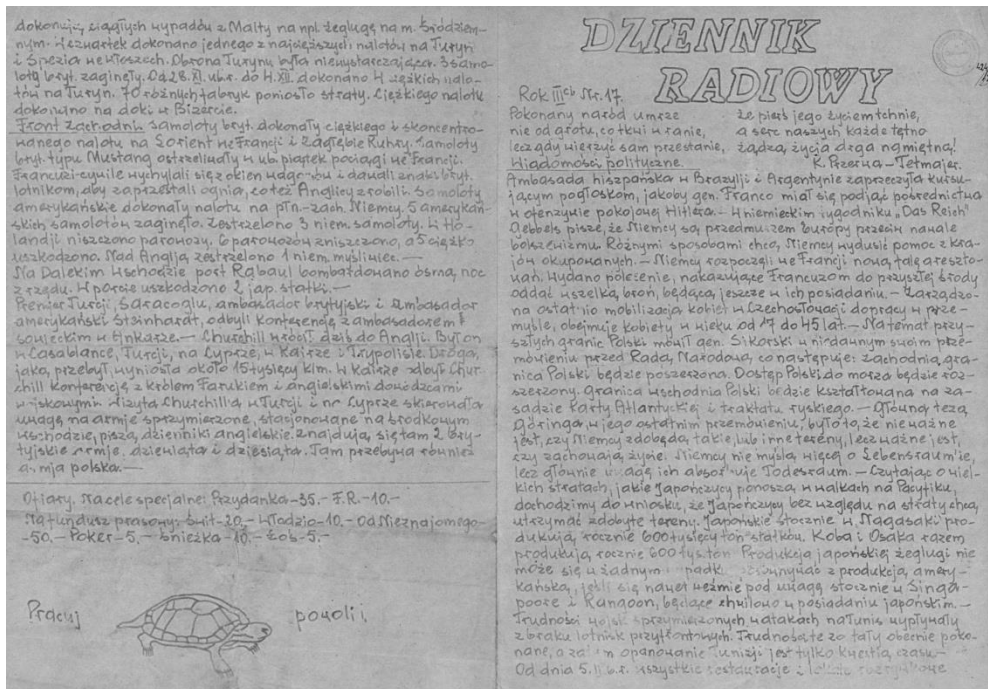 dokonując ciągłych wypadów z Malty na npl. żeglugę na m. Śródziem-
nym. W czwartek dokonano jednego z najcięższych nalotów na Turyn
i Spezia we Włoszech. Obrona Turynu była niewystarczająca. 3 samo-
loty bryt. zaginęły. Od 28.XI. ub.r. do 4.XII. dokonano 4 ciężkich nalo-
tów na Turyn. 70 różnych fabryk poniosło straty. Ciężkiego nalotu
dokonano na doki w Bizercie.
Front zachodni. Samoloty bryt. dokonały ciężkiego i skoncentro-
wanego nalotu na Lorient we Francji i Zagłębie Ruhry. Samoloty
bryt. typu Mustang ostrzeliwały w ub. piątek pociągi we Francji.
Francuzi-cywile wychylali się z okien wagonów i dawali znaki bryt.
lotnikom, aby zaprzestali ognia, co też Anglicy zrobili. Samoloty
amerykańskie dokonały nalotu na płn.-zach. Niemcy. 5 amerykań-
skich samolotów zaginęło. Zestrzelono 3 niem. samoloty. W Ho-
landji niszczono parowozy. 6 parowozów zniszczono, a 5 ciężko
uszkodzono. Nad Anglją zestrzelono 1 niem. myśliwiec. —
Na Dalekim Wschodzie port Rabaul bombardowano ósmą noc
z rzędu. W porcie uszkodzono 2 jap. statki. —
Premier Turcji, Saracoglu, ambasador brytyjski i ambasador
amerykański Steinhardt, odbyli konferencję z ambasadorem
sowieckim w Ankarze. — Churchill wrócił dziś do Anglji. Był on
w Casablance, Turcji, na Cyprze, w Kairze i Trypolisie. Droga,
jaką przebył, wyniosła około 15 tysięcy klm. W Kairze odbył Chur-
chill konferencję z królem Farukiem i angielskimi dowódcami
wojskowymi. Wizyta Churchilla w Turcji i na Cyprze skierowała
uwagę na armje sprzymierzone, stacjonowane na Środkowym
Wschodzie, piszą dzienniki angielskie. Znajdują się tam 2 bry-
tyjskie armje, dziewiąta i dziesiąta. Tam przebywa również
armja polska. —
Ofiary. Na cele specjalne: Przydanka -35.- F.R. -10.-
Na fundusz prasowy: Świt -20.- Władzio -10.- Od Nieznajomego-
-50.- Poker -5.- Śnieżka -10.- Łoś -5.-
Pracuj powoli!
DZIENNIK
RADIOWY
Rok IIIci Nr. 17.
Pokonany naród umrze
nie od grotu, co tkwi w ranie,
lecz gdy wierzyć sam przestanie,
że pierś jego życiem tchnie,
a serc naszych każde tętno
żądzą życia drga namiętną!
K. Przerwa-Tetmajer.
Wiadomości polityczne.
Ambasada hiszpańska w Brazylji i Argentynie zaprzeczyła kursu-
jącym pogłoskom, jakoby gen. Franco miał się podjąć pośrednictwa
w ofenzywie pokojowej Hitlera. — W niemieckim tygodniku „Das Reich"
Gebbels pisze, że Niemcy są przedmurzem Europy przeciw nawale
bolszewizmu. Różnymi sposobami chcą Niemcy wydusić pomoc z kra-
jów okupowanych. — Niemcy rozpoczęli we Francji nową falę areszto-
wań. Wydano polecenie, nakazujące Francuzom do przyszłej środy
oddać wszelką broń, będącą jeszcze w ich posiadaniu. — Zarządzo-
na ostatnio mobilizacja kobiet w Czechosłowacji do pracy w prze-
myśle, obejmuje kobiety w wieku od 17 do 45 lat. — Na temat przy-
szłych granic Polski mówił gen. Sikorski w niedawnym swoim prze-
mówieniu przed Radą Narodową, co następuje: zachodnia gra-
nica Polski będzie poszerzona. Dostęp Polski do morza będzie roz-
szerzony. Granica wschodnia Polski będzie kształtowana na za-
sadzie Karty Atlantyckiej i traktatu ryskiego. — Główną tezą
Göringa w jego ostatnim przemówieniu, było to, że nieważne
jest, czy Niemcy zdobędą takie, lub inne tereny, lecz ważne jest,
czy zachowają życie. Niemcy nie myślą więcej o Lebensraum'ie,
lecz głównie uwagę ich absorbuje Todesraum. — Czytając o wiel-
kich stratach, jakie Japończycy ponoszą w walkach na Pacyfiku,
dochodzimy do wniosku, że Japończycy bez względu na straty chcą
utrzymać zdobyte tereny. Japońskie stocznie w Nagasaki pro-
dukują rocznie 600 tysięcy ton statków. Koba i Osaka razem
produkują rocznie 600 tys. ton. Produkcja japońskiej żeglugi nie
może się w żadnym wypadku porównywać z produkcją amery-
kańską, jeśli się nawet weźmie pod uwagę stocznie w Singa-
poore i Rangoon, będące chwilowo w posiadaniu japońskim. —
Trudności wojsk sprzymierzonych w atakach na Tunis wypływały
z braku lotnisk przyfrontowych. Trudności te zostały obecnie poko-
nane, a zatem opanowanie Tunizji jest tylko kwestią czasu —
Od dnia 5.II. b.r. wszystkie restauracje i lokale rozrywkowe